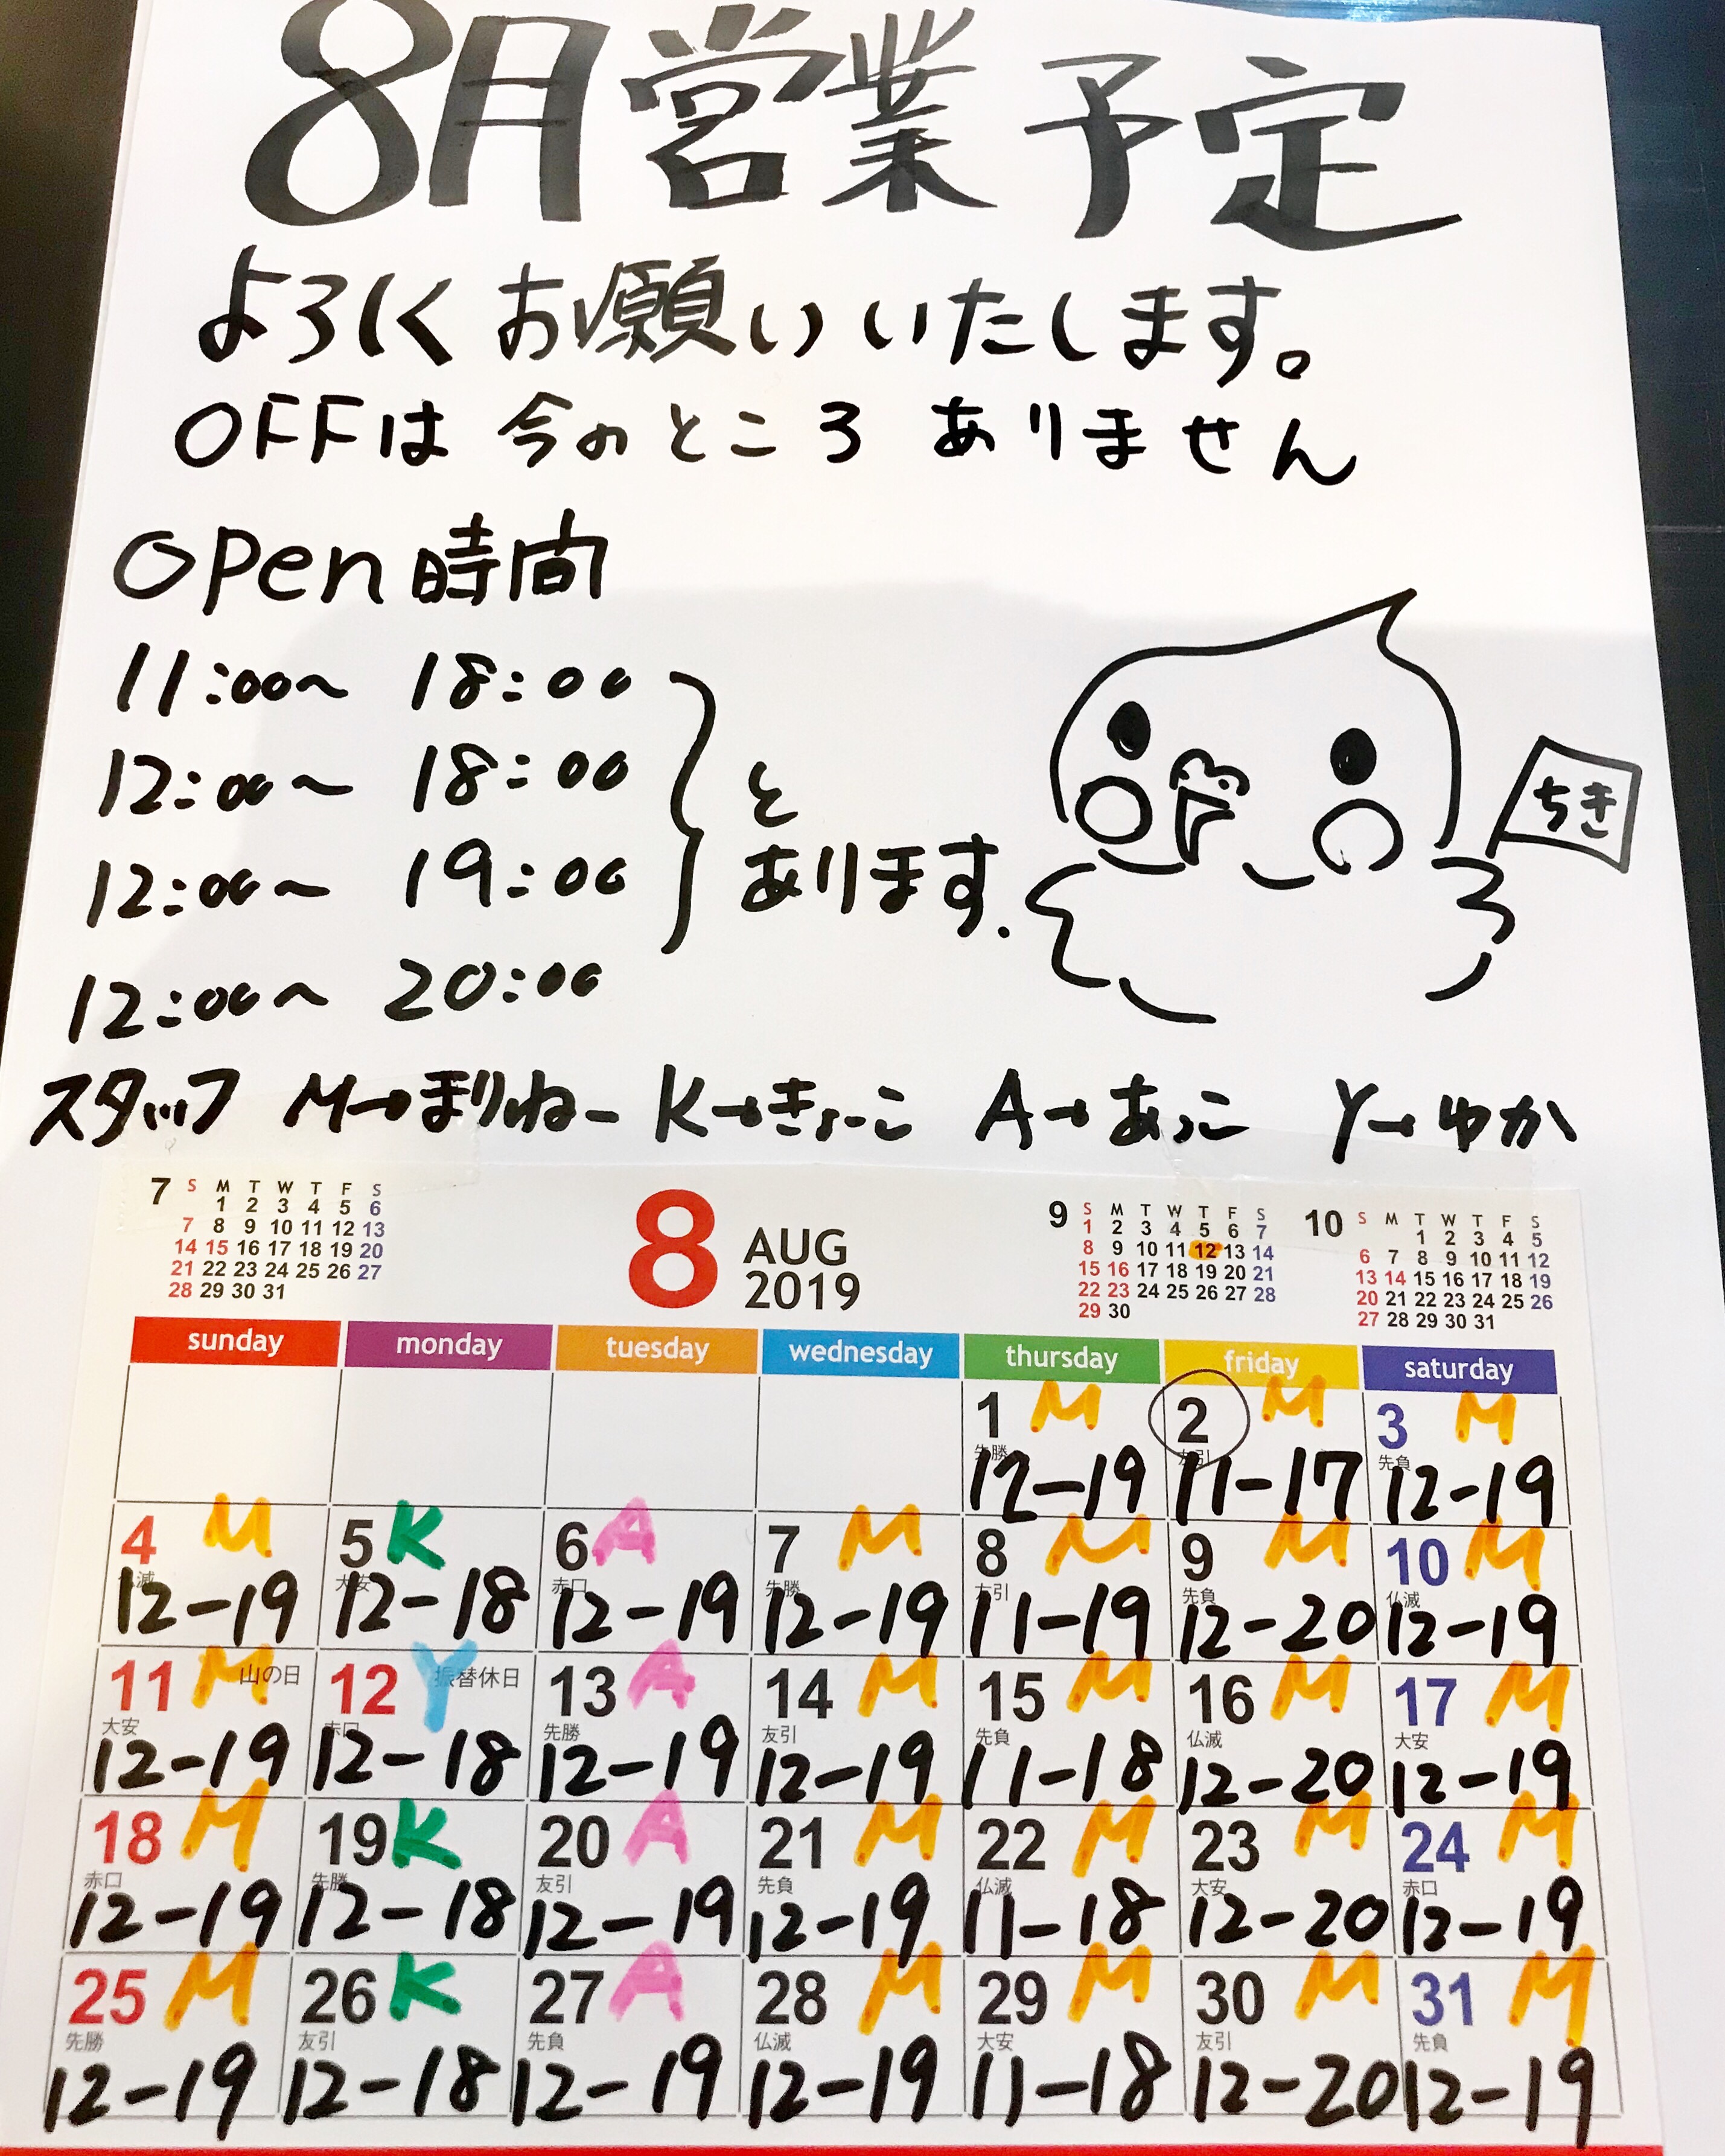 8月営業予定
よろしくお願いいたします。
OFFは今のところありません
open時間
11:00〜 18:00
12:00〜 18:00
12:00〜 19:00
12:00〜 20:00
と
あります.
ちき
スタッフ M→まりねー K→きょーこ A→あっこ Y→ゆか
7
S M T W T F S
1 2 3 4 5 6
7 8 9 10 11 12 13
14 15 16 17 18 19 20
21 22 23 24 25 26 27
28 29 30 31
8 AUG
2019
9
S M T W T F S
1 2 3 4 5 6 7
8 9 10 11 12 13 14
15 16 17 18 19 20 21
22 23 24 25 26 27 28
29 30
10
S M T W T F S
1 2 3 4 5
6 7 8 9 10 11 12
13 14 15 16 17 18 19
20 21 22 23 24 25 26
27 28 29 30 31
sunday monday tuesday wednesday thursday friday saturday
1 M 2 M 3 M
先勝 友引 先負
12-19 11-17 12-19
4 M 5 K 6 A 7 M 8 M 9 M 10 M
仏滅 大安 赤口 先勝 友引 先負 仏滅
12-19 12-18 12-19 12-19 11-19 12-20 12-19
11 M 山の日 12 Y 振替休日 13 A 14 M 15 M 16 M 17 M
大安 赤口 先勝 友引 先負 仏滅 大安
12-19 12-18 12-19 12-19 11-18 12-20 12-19
18 M 19 K 20 A 21 M 22 M 23 M 24 M
赤口 先勝 友引 先負 仏滅 大安 赤口
12-19 12-18 12-19 12-19 11-18 12-20 12-19
25 M 26 K 27 A 28 M 29 M 30 M 31 M
先勝 友引 先負 仏滅 大安 友引 先負
12-19 12-18 12-19 12-19 11-18 12-20 12-19